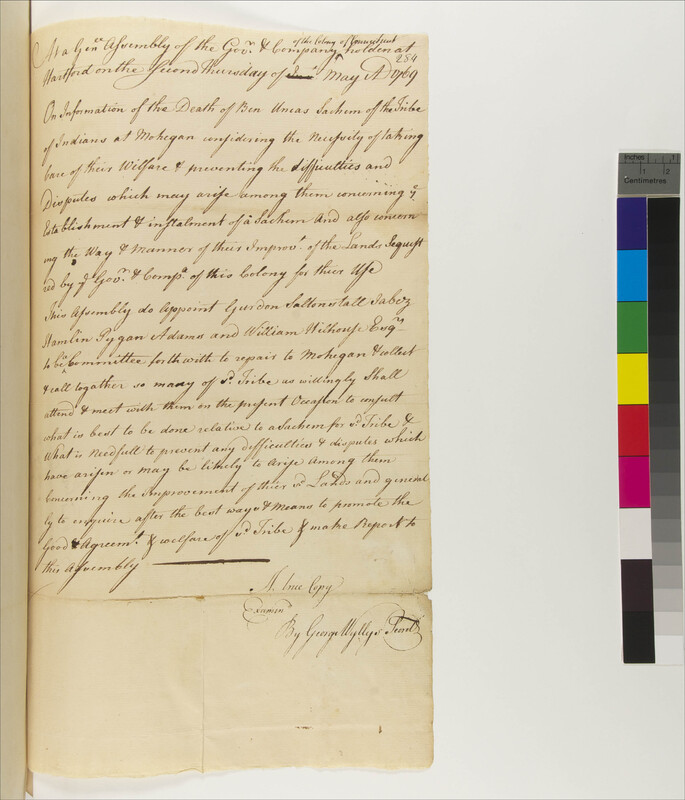 of the Colony of Connecticut
At a Genll Assembly of the Govr. & Company holden at
284
Hartford on the Second Thursday of May AD 1769
On Information of the Death of Ben Uncas Sachem of the Tribe
of Indians at Mohegan considering the Necessity of taking
Care of their Welfare & preventing the difficulties and
Disputes which may arise among them concerning ye
Establishment & instalment of a Sachem And also concern
ing the Way & Manner of their Improvt. of the Lands Sequest
red by ye Govr. & Compa. of this Colony for their Use
This Assembly do Appoint Gurdon Saltonstall Jabez
Hamlin Pygan Adams and William Hilhouse Esqrs
to be a Committee forthwith to repair to Mohegan & collect
& call together so many of sd. Tribe as willingly Shall
attend & meet with them on the present Occasion to consult
what is best to be done relative to a Sachem for sd. Tribe &
What is Needfull to prevent any difficulties & disputes which
have arisen or may be likely to Arise Among them
Concerning the Improvement of their sd. Lands and general
ly to enquire after the best ways & Means to promote the
Good & Agreemt. & welfare of sd. Tribe & make Report to
this Assembly
A true Copy
Examind
By George Wyllys Secrety
Inches
1
1
2
Centimetres